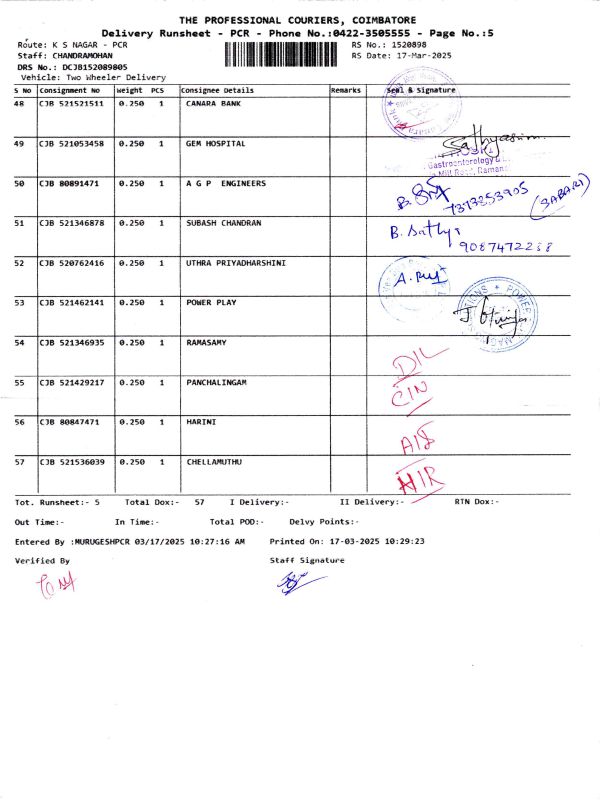 THE PROFESSIONAL COURIERS, COIMBATORE
Delivery Runsheet - PCR - Phone No.:0422-3505555 - Page No.:5
Route: K S NAGAR - PCR RS No.: 1520898
Staff: CHANDRAMOHAN RS Date: 17-Mar-2025
DRS No.: DCJB152089805
Vehicle: Two Wheeler Delivery
S No Consignment No Weight PCS Consignee Details Remarks Seal & Signature
48 CJB 521521511 0.250 1 CANARA BANK
49 CJB 521053458 0.250 1 GEM HOSPITAL
Gastroenterology
Mill Road, Raman
50 CJB 80891471 0.250 1 A G P ENGINEERS
7373353905 (SABARI)
51 CJB 521346878 0.250 1 SUBASH CHANDRAN B. Sathya
9087472288
52 CJB 520762416 0.250 1 UTHRA PRIYADHARSHINI
53 CJB 521462141 0.250 1 POWER PLAY
POWER
54 CJB 521346935 0.250 1 RAMASAMY DIL
55 CJB 521429217 0.250 1 PANCHALINGAM CIN
56 CJB 80847471 0.250 1 HARINI
57 CJB 521536039 0.250 1 CHELLAMUTHU HIR
Tot. Runsheet:- 5 Total Dox:- 57 I Delivery:- II Delivery:- RTN Dox:-
Out Time:- In Time:- Total POD:- Delvy Points:-
Entered By :MURUGESHPCR 03/17/2025 10:27:16 AM Printed On: 17-03-2025 10:29:23
Verified By Staff Signature